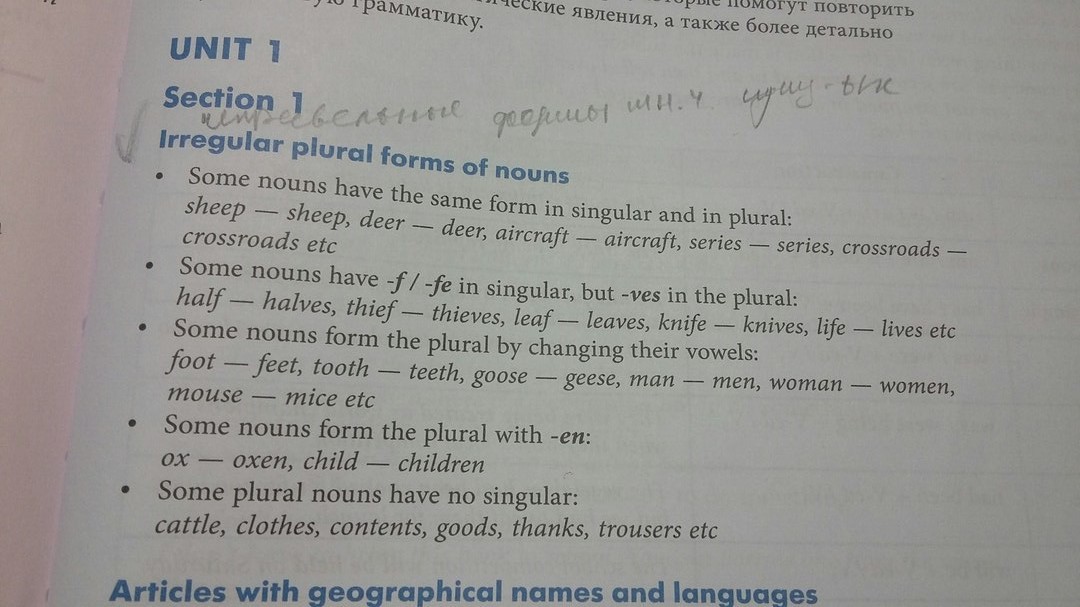 помогут повторить
грамматику.
ческие явления, а также более детально
UNIT 1
Section 1
формы мн.ч.
Irregular plural forms of nouns
• Some nouns have the same form in singular and in plural:
sheep — sheep, deer — deer, aircraft — aircraft, series — series, crossroads —
crossroads etc
• Some nouns have -f / -fe in singular, but -ves in the plural:
half — halves, thief — thieves, leaf — leaves, knife — knives, life — lives etc
• Some nouns form the plural by changing their vowels:
foot — feet, tooth — teeth, goose — geese, man — men, woman — women,
mouse — mice etc
• Some nouns form the plural with -en:
ox — oxen, child — children
• Some plural nouns have no singular:
cattle, clothes, contents, goods, thanks, trousers etc
Articles with geographical names and languages